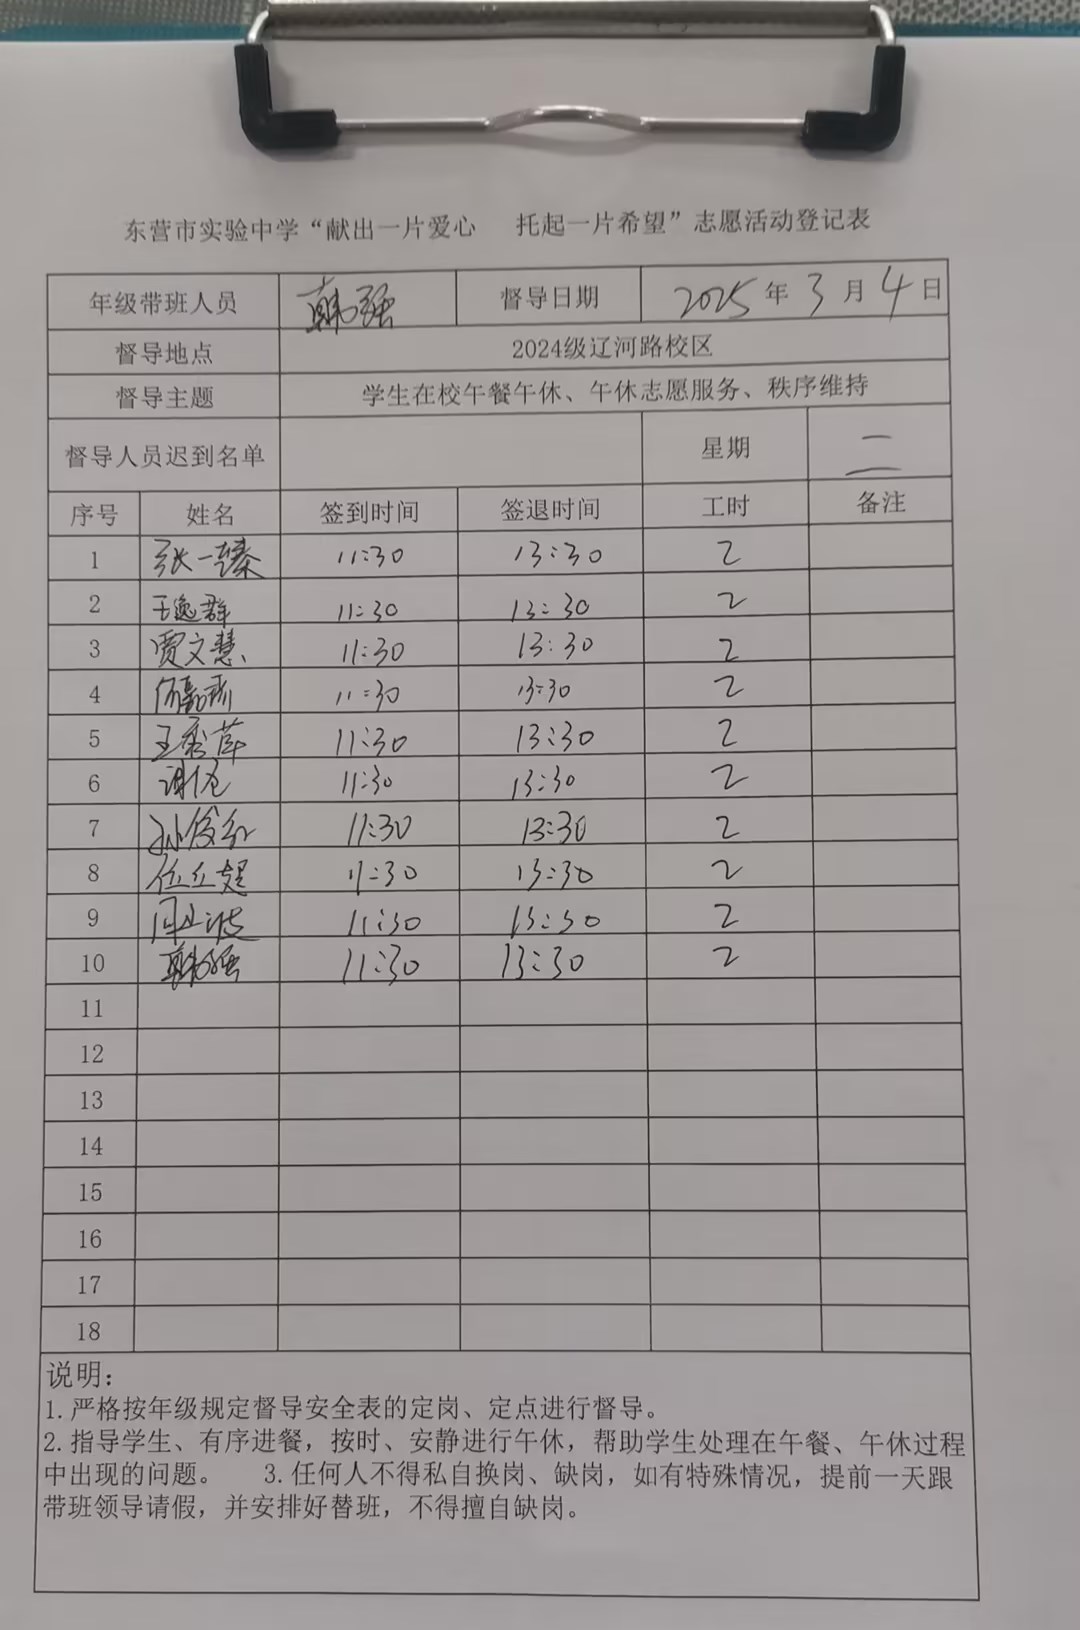 东营市实验中学“献出一片爱心 托起一片希望”志愿活动登记表
年级带班人员 韩强 督导日期 2025年3月4日
督导地点 2024级辽河路校区
督导主题 学生在校午餐午休、午休志愿服务、秩序维持
督导人员迟到名单 星期 二
序号 姓名 签到时间 签退时间 工时 备注
1 张一臻 11:30 13:30 2
2 王逸群 11:30 13:30 2
3 贾文慧 11:30 13:30 2
4 11:30 13:30 2
5 王秀萍 11:30 13:30 2
6 11:30 13:30 2
7 11:30 13:30 2
8 位立超 11:30 13:30 2
9 11:30 13:30 2
10 韩强 11:30 13:30 2
11
12
13
14
15
16
17
18
说明：
1.严格按年级规定督导安全表的定岗、定点进行督导。
2.指导学生、有序进餐，按时、安静进行午休，帮助学生处理在午餐、午休过程
中出现的问题。 3.任何人不得私自换岗、缺岗，如有特殊情况，提前一天跟
带班领导请假，并安排好替班，不得擅自缺岗。